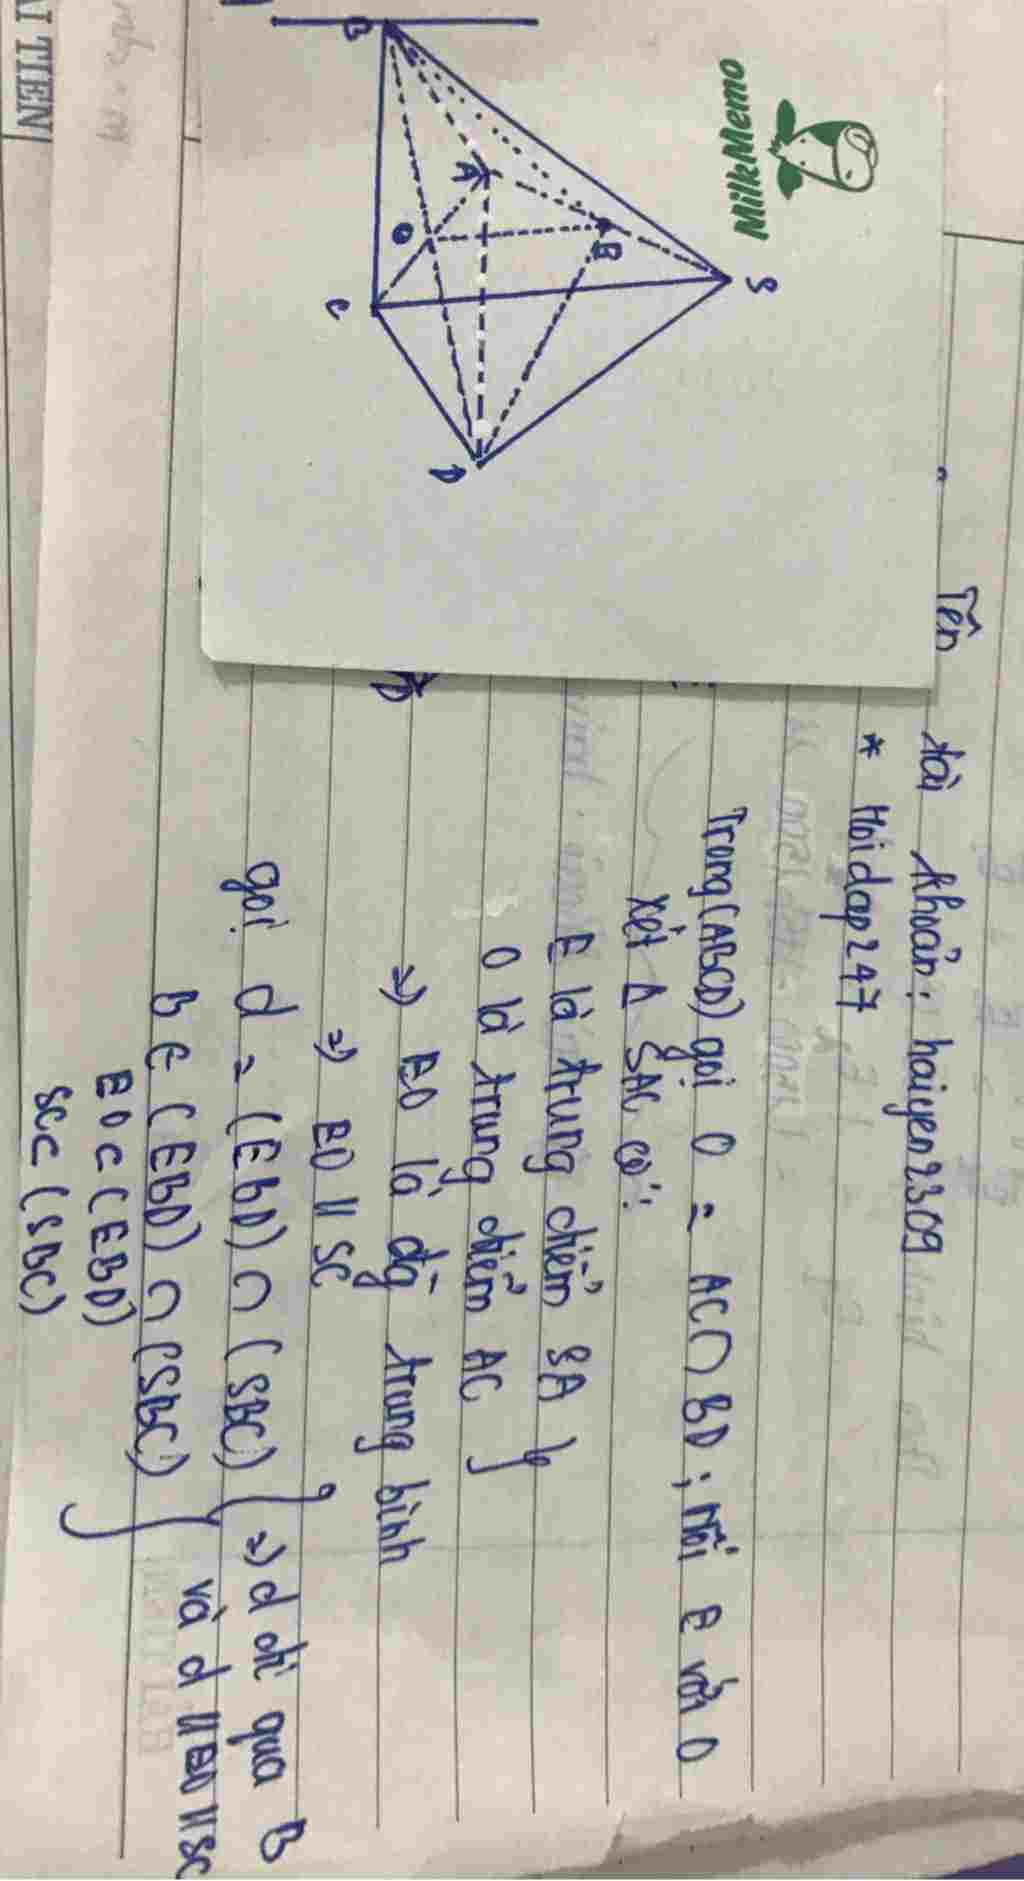 MilkMemo
S
B
A
B
O
C
D
Tên tài khoản: haiyen2309
* Hoidap247
Trong (ABCD) gọi O = AC ∩ BD; Nối E với O
xét Δ SAC có:
E là trung điểm SA }
O là trung điểm AC
=) EO là đg trung bình
=) EO // SC
gọi d = (EBD) ∩ (SBC) } =) d đi qua B
B ∈ (EBD) ∩ (SBC) và d // EO // SC
EO ⊂ (EBD)
SC ⊂ (SBC)
TIEN